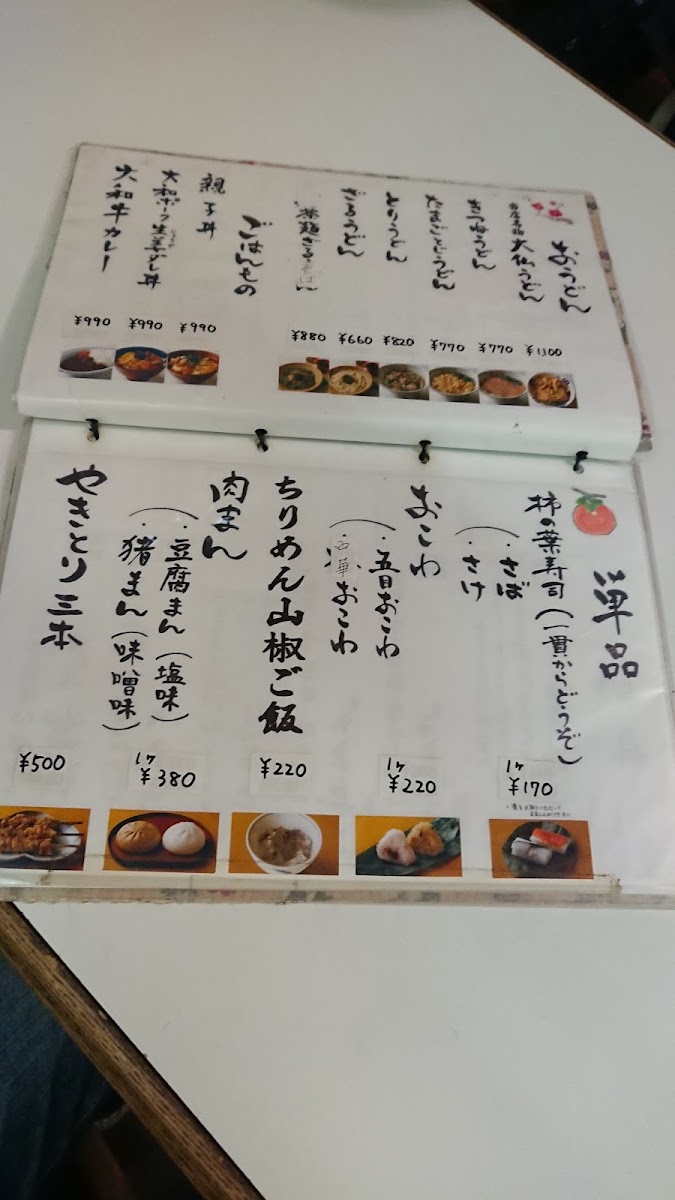 おうどん
当店名物 大仏うどん
¥1,100
きつねうどん
¥770
たまごとじうどん
¥770
とりうどん
¥820
ざるうどん
¥660
茶麺ざるそば
¥880
ごはんもの
親子丼
¥990
大和ポーク生姜ダレ丼
¥990
大和牛カレー
¥990
単品
柿の葉寿司(一貫からどうぞ)
・さば
・さけ
1ヶ
¥170
おこわ
・五目おこわ
おこわ
1ヶ
¥220
ちりめん山椒ご飯
¥220
肉まん
・豆腐まん(塩味)
・猪まん(味噌味)
1ヶ
¥380
やきとり三本
¥500